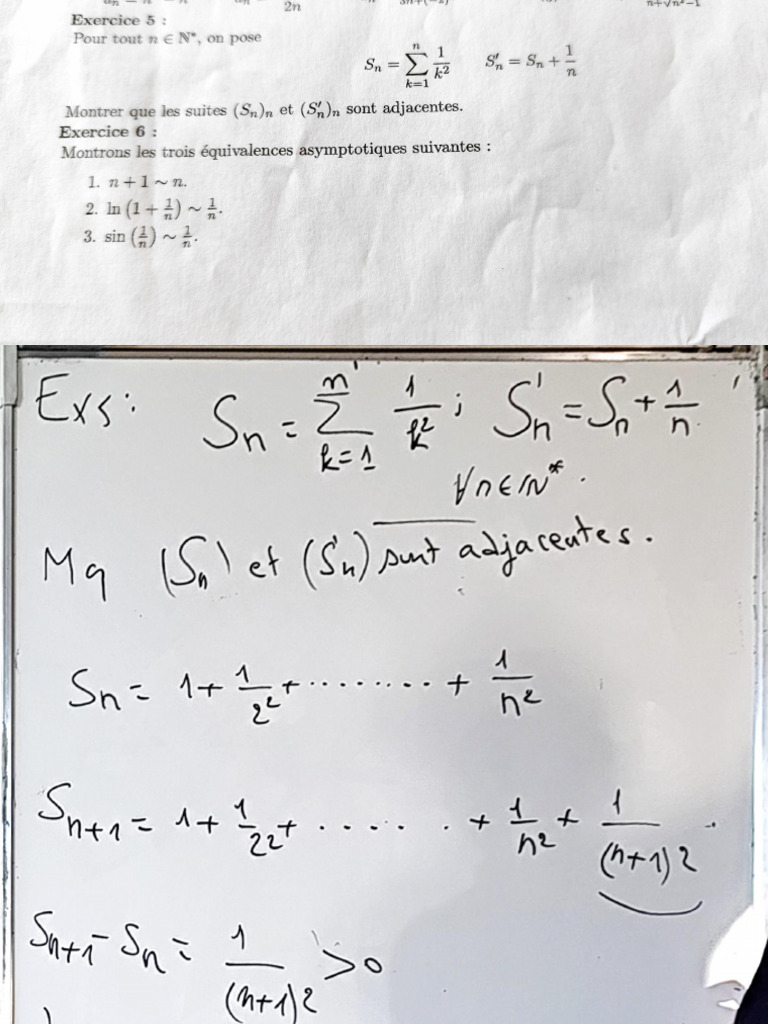 2n
n+√n²−1
Exercice 5 :
Pour tout n ∈ N*, on pose
Sₙ = ∑ₖ₌₁ⁿ 1/k²   S'ₙ = Sₙ + 1/n
Montrer que les suites (Sₙ)ₙ et (S'ₙ)ₙ sont adjacentes.
Exercice 6 :
Montrons les trois équivalences asymptotiques suivantes :
1. n + 1 ∼ n.
2. ln (1 + 1/n) ∼ 1/n.
3. sin (1/n) ∼ 1/n.
Ex5: Sₙ = ∑ₖ₌₁ⁿ 1/k² ; S'ₙ = Sₙ + 1/n
∀n∈ℕ*.
Mq (Sₙ) et (S'ₙ) sont adjacentes.
Sₙ = 1 + 1/2² + ........ + 1/n²
Sₙ₊₁ = 1 + 1/2² + ...... + 1/n² + 1/(n+1)².
Sₙ₊₁ − Sₙ = 1/(n+1)² > 0